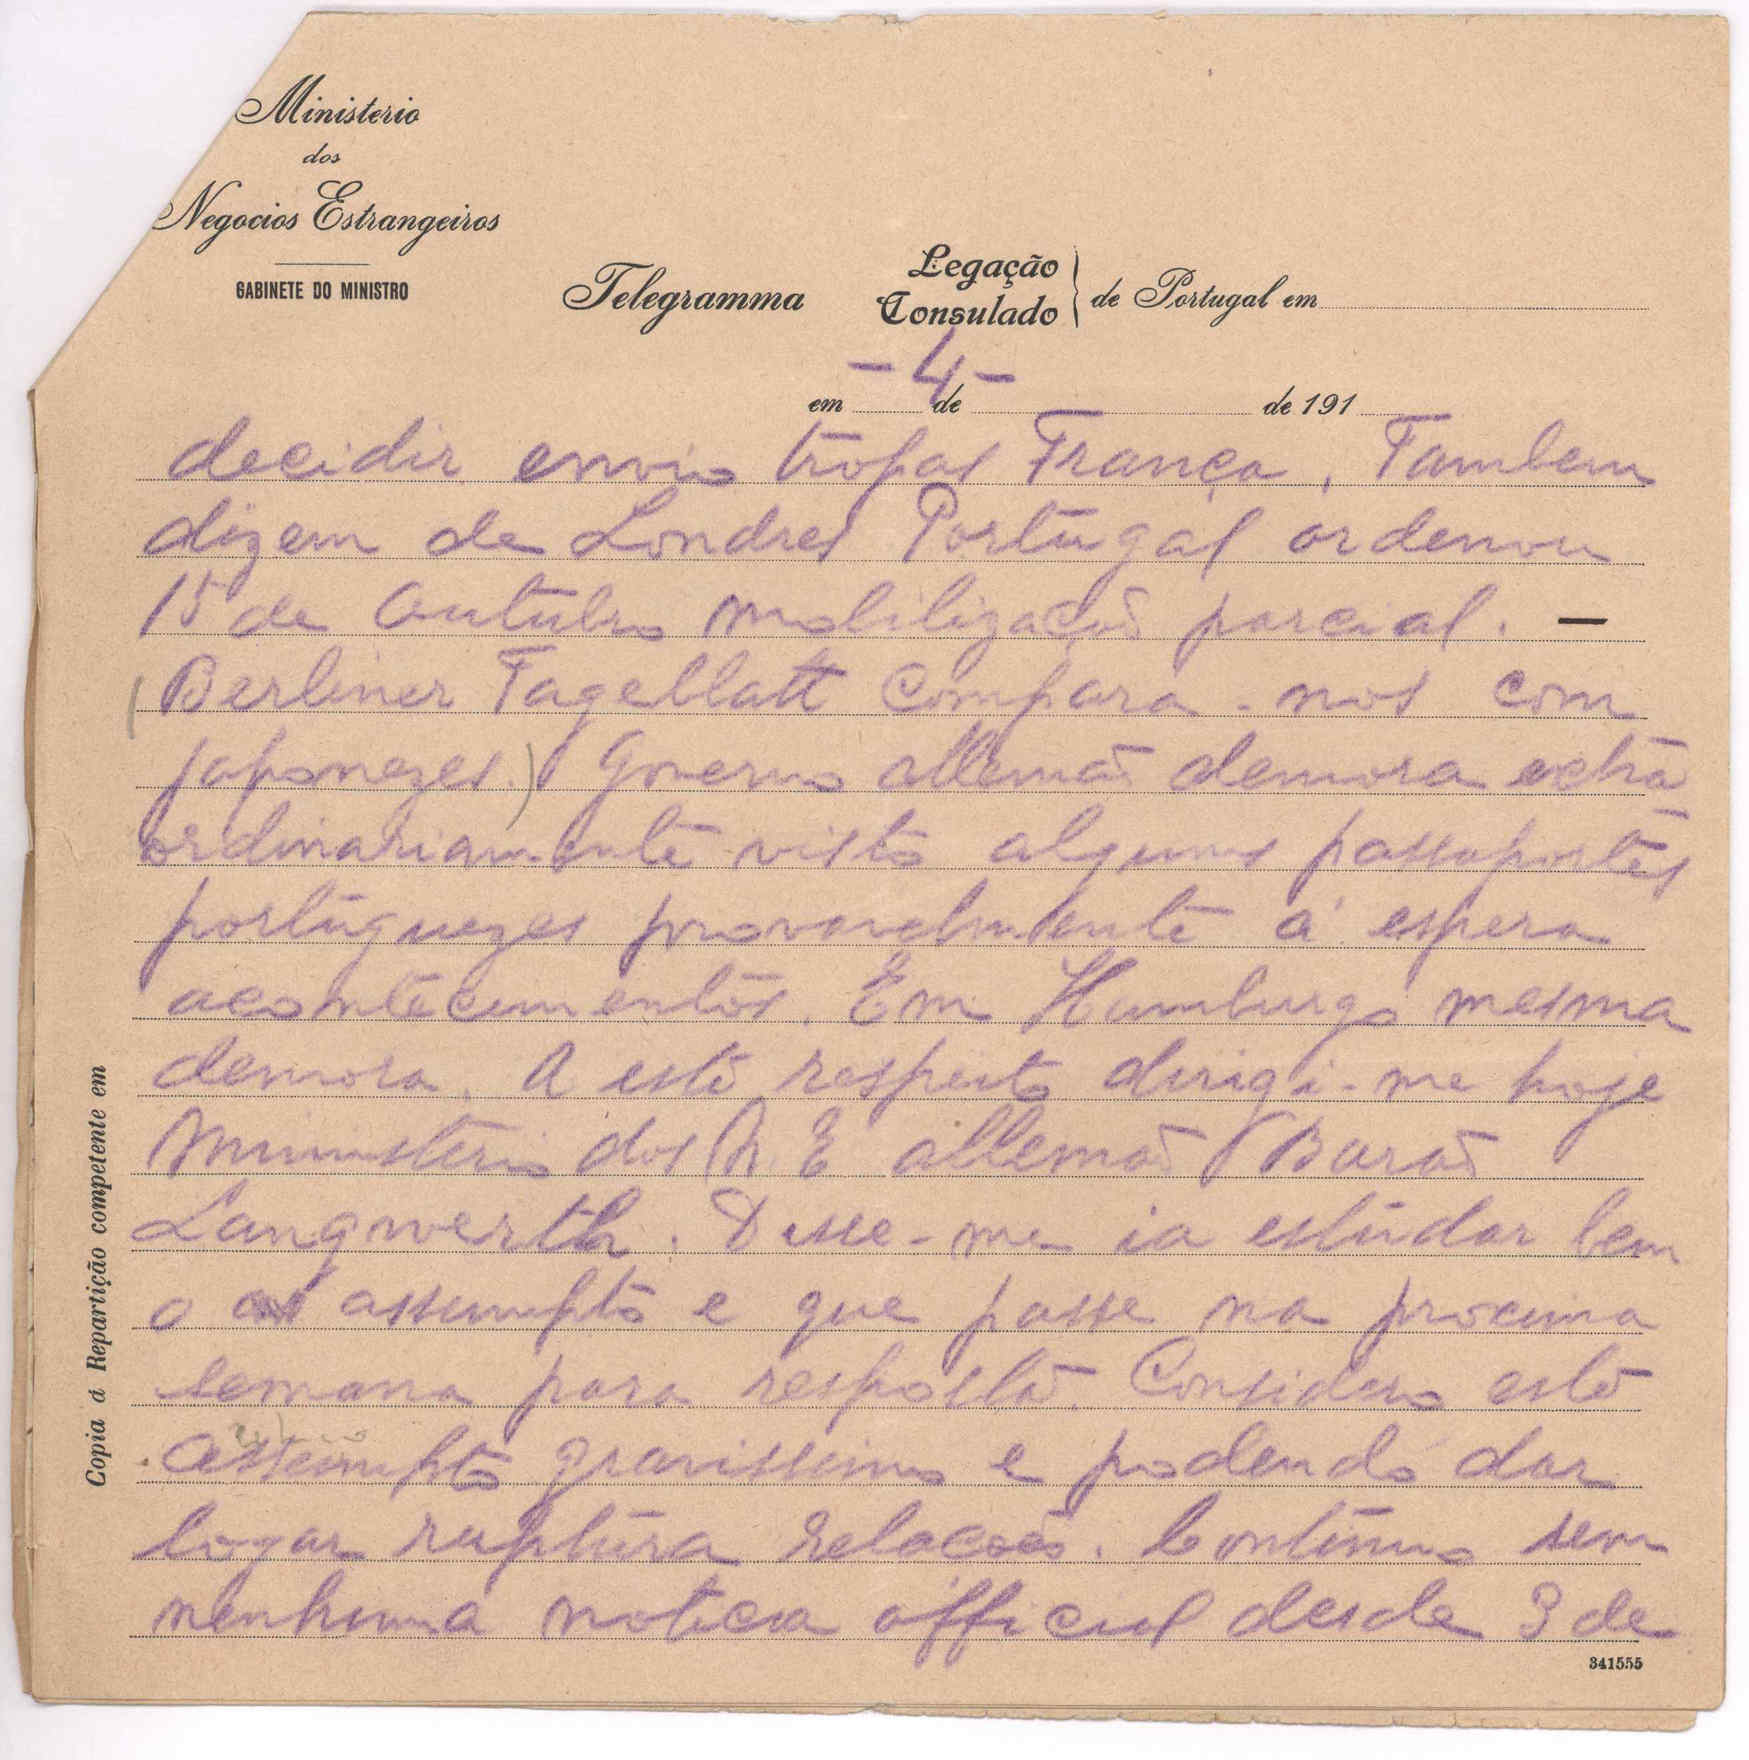 Ministerio
dos
Negocios Estrangeiros
GABINETE DO MINISTRO
Telegramma
Legação
Consulado
de Portugal em
- 4 -
em de de 191
decidir envio tropas França, Tambem
dizem de Londres Portugal ordenou
15 de Outubro mobilização parcial. —
(Berliner Tageblatt compara-nos com
japonezes.) Governo allemão demora extra
ordinariamente visto alguns passaportes
portuguezes provavelmente á espera
acontecimentos. Em Hamburgo mesma
demora. A este respeito dirigi-me hoje
Ministerio dos N. E allemão Barão
Langwerth. Disse-me ia estudar bem
o assumpto e que passe na proxima
semana para resposta. Considero este
assumpto gravissimo e podendo dar
logar ruptura relações. Continuo sem
nenhuma noticia official desde 3 de
Copia á Repartição competente em
341555